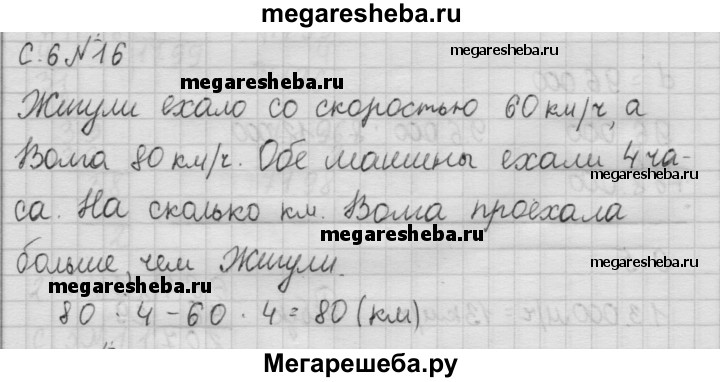 megaresheba.ru
С. 6 №16
megaresheba.ru
megaresheba.ru
Жигули ехало со скоростью 60 км/ч, а
Волга 80 км/ч. Обе машины ехали 4 ча-
са. На сколько км. Волга проехала
megaresheba.ru
megaresheba.ru
больше, чем Жигули.
megaresheba.ru
80 · 4 - 60 · 4 = 80 (км)
Мегарешеба.ру